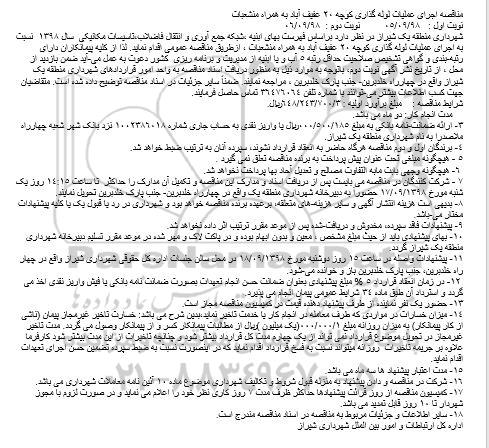 مناقصه اجرای عملیات لوله گذاری کوچه ۲۰ عفیف آباد به همراه منشعبات
نوبت اول : ۰۵/۰۹/۹۸ نوبت دوم : ۰۶/۰۹/۹۸
شهرداری منطقه یک شیراز در نظر دارد براساس فهرست بهای ابنیه ،شبکه جمع آوری و انتقال فاضلاب،تاسیسات مکانیکی سال ۱۳۹۸ نسبت
به اجرای عملیات لوله گذاری کوچه ۲۰ عفیف آباد به همراه منشعبات ، ازطریق مناقصه عمومی اقدام نماید. لذا از کلیه پیمانکاران دارای
رتبه‌بندی و گواهی تشخیص صلاحیت حداقل رتبه ۵ آب و یا ابنیه از مدیریت و برنامه ریزی کشور دعوت به عمل می‌آید ضمن بازدید از
محل ، از تاریخ نشر آگهی نوبت دوم، باتوجه به موارد ذیل به منظور دریافت اسناد مناقصه به واحد امور قراردادهای شهرداری منطقه یک
شیراز واقع در چهارراه خلدبرین- جنب پارک خلدبرین ، مراجعه نمایند. ضمناً سایر جزئیات در اسناد مناقصه توضیح داده شده است. متقاضیان
جهت کسب اطلاعات بیشتر می‌توانند با شماره تلفن ۳۶۴۷۶۰۶۴ تماس حاصل فرمایند.
شرایط مناقصه : مبلغ برآورد اولیه :
مدت انجام کار: دو ماه می باشد.
۳- ارائه ضمانت‌نامه بانکی به مبلغ ریال یا واریز نقدی به حساب جاری شماره ۱۰۰۲۳۸۶۰۱۸ نزد بانک شهر شعبه چهارراه
ملاصدرا به نام شهرداری منطقه یک شیراز.
۴- برندگان اول و دوم مناقصه هرگاه حاضر به انعقاد قرارداد نشوند، سپرده آنان به ترتیب ضبط خواهد شد.
۵ - هیچگونه مبلغی تحت عنوان پیش پرداخت به برنده مناقصه تعلق نمی گیرد .
۶- هیچگونه وجهی بابت مابه التفاوت مصالح و تعدیل آحاد بها پرداخت نخواهد شد.
۷ - شرکت کنندگان در مناقصه می بایست پس از دریافت اسناد و مدارک این مناقصه و تکمیل آن مدارک را حداکثر تا ساعت ۱۴:۱۵ روز یک
شنبه مورخ ۱۷/۰۹/۱۳۹۸ حضوراً به دبیرخانه شهرداری منطقه یک واقع در چهارراه خلدبرین- جنب پارک خلدبرین تحویل نمایند.
۸- بدیهی است هزینه انتشار آگهی و سایر هزینه‌های متعلقه، برعهده برنده مناقصه خواهد بود و شهرداری در رد یا قبول یک یا کلیه پیشنهادات
مختار می‌باشد.
۹- پیشنهادات فاقد سپرده، مخدوش و دریافت‌شده پس از موعد مقرر ترتیب اثر داده نخواهد شد.
۱۰- بهای پیشنهادی باید از حیث مبلغ مشخص ، معین و بدون ابهام بوده و در پاکت لاک و مهر شده در موعد مقرر تسلیم دبیرخانه شهرداری
منطقه یک شیراز گردد .
۱۱- پیشنهادات واصله در ساعت ۱۵ روز دوشنبه مورخ ۱۸/۰۹/۱۳۹۸ در محل سالن جلسات اداره کل حقوقی شهرداری شیراز واقع در چهار
راه خلدبرین، جنب پارک خلدبرین باز و خوانده می‌شود.
۱۲- در زمان انعقاد قرارداد ۵ % مبلغ پیشنهادی بعنوان ضمانت حسن انجام تعهدات بصورت ضمانت نامه بانکی یا فیش واریز نقدی اخذ می
گردد و استرداد آن طبق ماده ۳۴ شرایط عمومی پیمان انجام می پذیرد .
۱۳- حضور یک نفر نماینده، از طرف پیشنهاددهنده قیمت در کمیسیون مناقصه مجاز است.
۱۴- میزان خسارات در مواردی که طرف معامله در انجام کار یا خدمت تاخیر نماید،بدین شرح می باشد: خسارت تاخیر غیرمجاز پیمان (ناشی
از کار پیمانکار) به میزان روزانه مبلغ ۱/۰۰۰/۰۰۰(یک میلیون )ریال از مطالبات پیمانکار کسر و از پیمانکار وصول می گردد. مدت تاخیر
غیرمجاز در تحویل موضوع قرارداد نمی تواند از یک چهارم مدت کل قرارداد بیشتر شود و چنانچه تاخیرات از این مدت بیشتر شود کارفرما
علاوه بر جریمه تاخیرات روزانه میتواند نسبت به فسخ قرارداد اقدام نماید که در اینصورت نسبت به ضبط سپرده تضمین حسن اجرای تعهدات
اقدام نماید.
۱۵- مدت اعتبار پیشنهاد ها سه ماه می باشد.
۱۶- شرکت در مناقصه و دادن پیشنهاد به منزله قبول شروط و تکالیف شهرداری موضوع ماده ۱۰ آئین نامه معاملات شهرداری می باشد.
۱۷- کمیسیون مناقصه از روز قرائت پیشنهادها حداکثر ظرف مدت ۷ روز کاری نظر خود را اعلام می نماید و در صورت لزوم با مجوز
شهردار تا ۱۰ روز قابل تمدید می باشد.
۱۸- سایر اطلاعات و جزئیات مربوط به مناقصه در اسناد مناقصه مندرج است.
اداره کل ارتباطات و امور بین الملل شهرداری شیراز